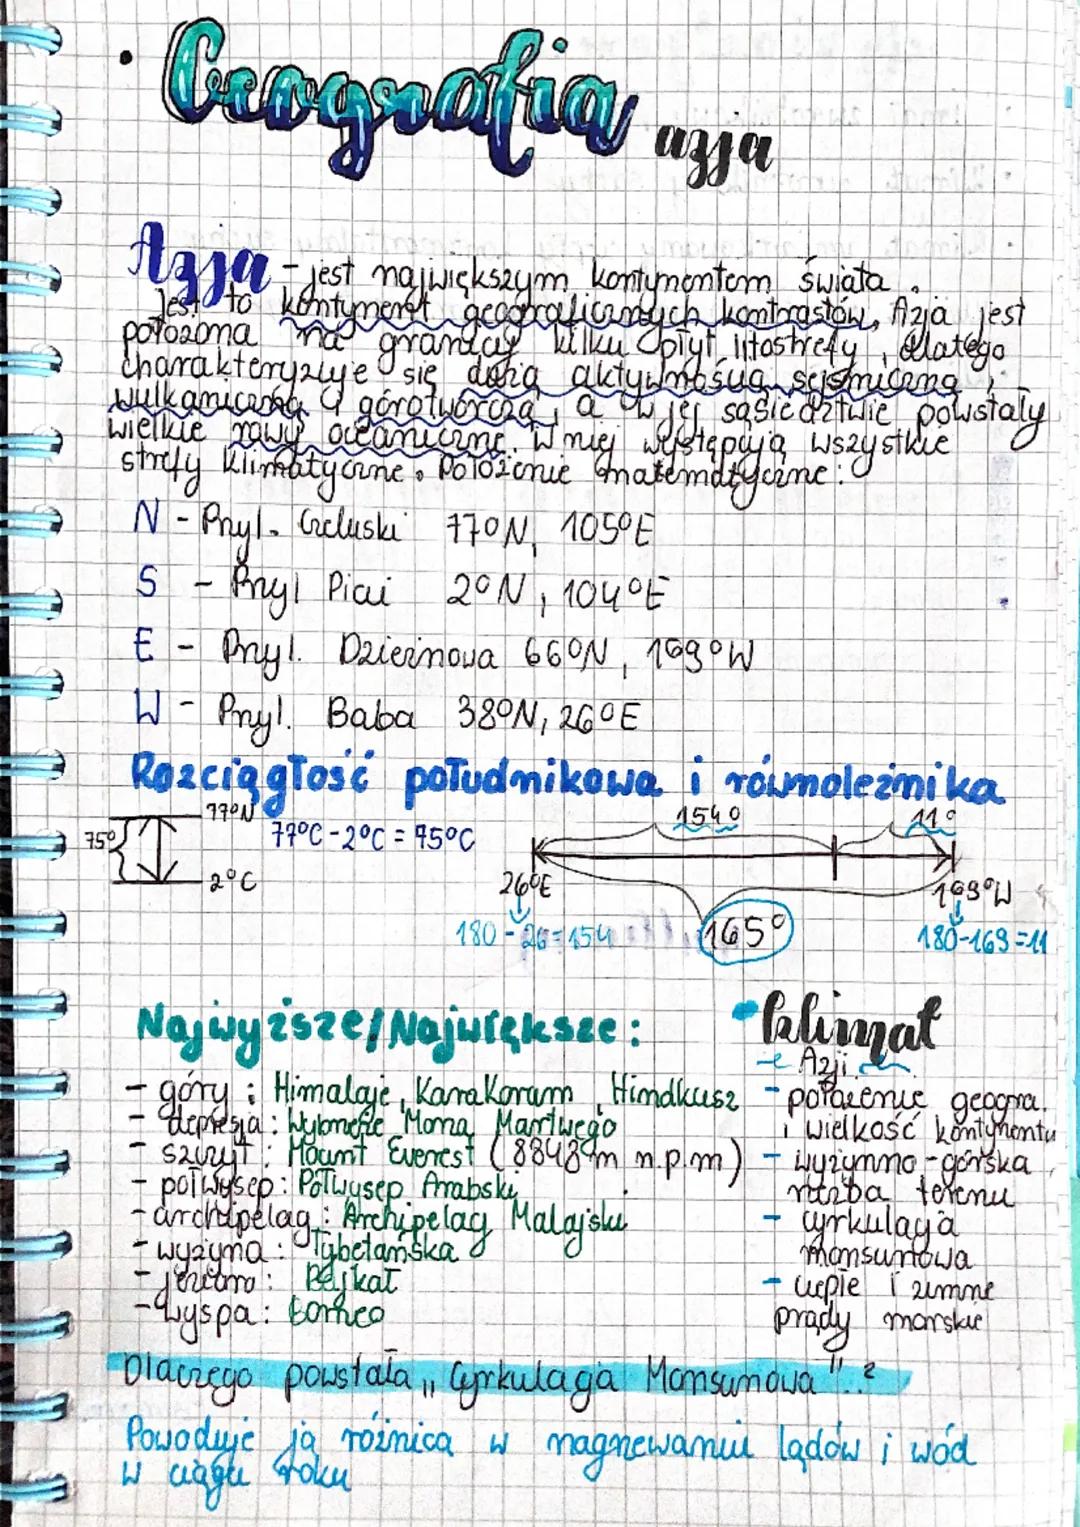 Geografia azja
Azja - jest największym kontynentem świata.
Jest to kontynent geograficznych kontrastów, Azja jest
położona na granicy kilku płyt litosfery, dlatego
charakteryzuje się dużą aktywnością sejsmiczną,
wulkaniczną i górotwórczą, a w jej sąsiedztwie powstały
wielkie rowy oceaniczne. W niej występują wszystkie
strefy klimatyczne. Położenie matematyczne:
N - Przyl. Czeluski 77°N, 105°E
S - Przyl Piai 2°N, 104°E
E - Przyl. Dzieżnowa 66°N, 169°W
W - Przyl. Baba 38°N, 26°E
Rozciągłość południkowa i równoleżnika
77°N
75°
77°C - 2°C = 75°C
2°C
154° 11°
26°E 169°W
180 - 26 = 154 165° 180-169=11
Najwyższe/Największe:
- góry: Himalaje, Karakorum, Hindkusz
- depresja: Wybrzeże Morza Martwego
- szczyt: Mount Everest (8848 m n.p.m)
- półwysep: Półwysep Arabski
- archipelag: Archipelag Malajski
- wyżyna: Tybetańska
- jezioro: Bajkał
- wyspa: Borneo
Klimat
Azji
- położenie geogra.
i wielkość kontynentu
- wyżynno-górska
rzeźba terenu
- cyrkulacja
monsunowa
- ciepłe i zimne
prądy morskie
Dlaczego powstała „Cyrkulacja Monsunowa"..?
Powoduje ją różnica w nagrzewaniu lądów i wód
w ciągu roku